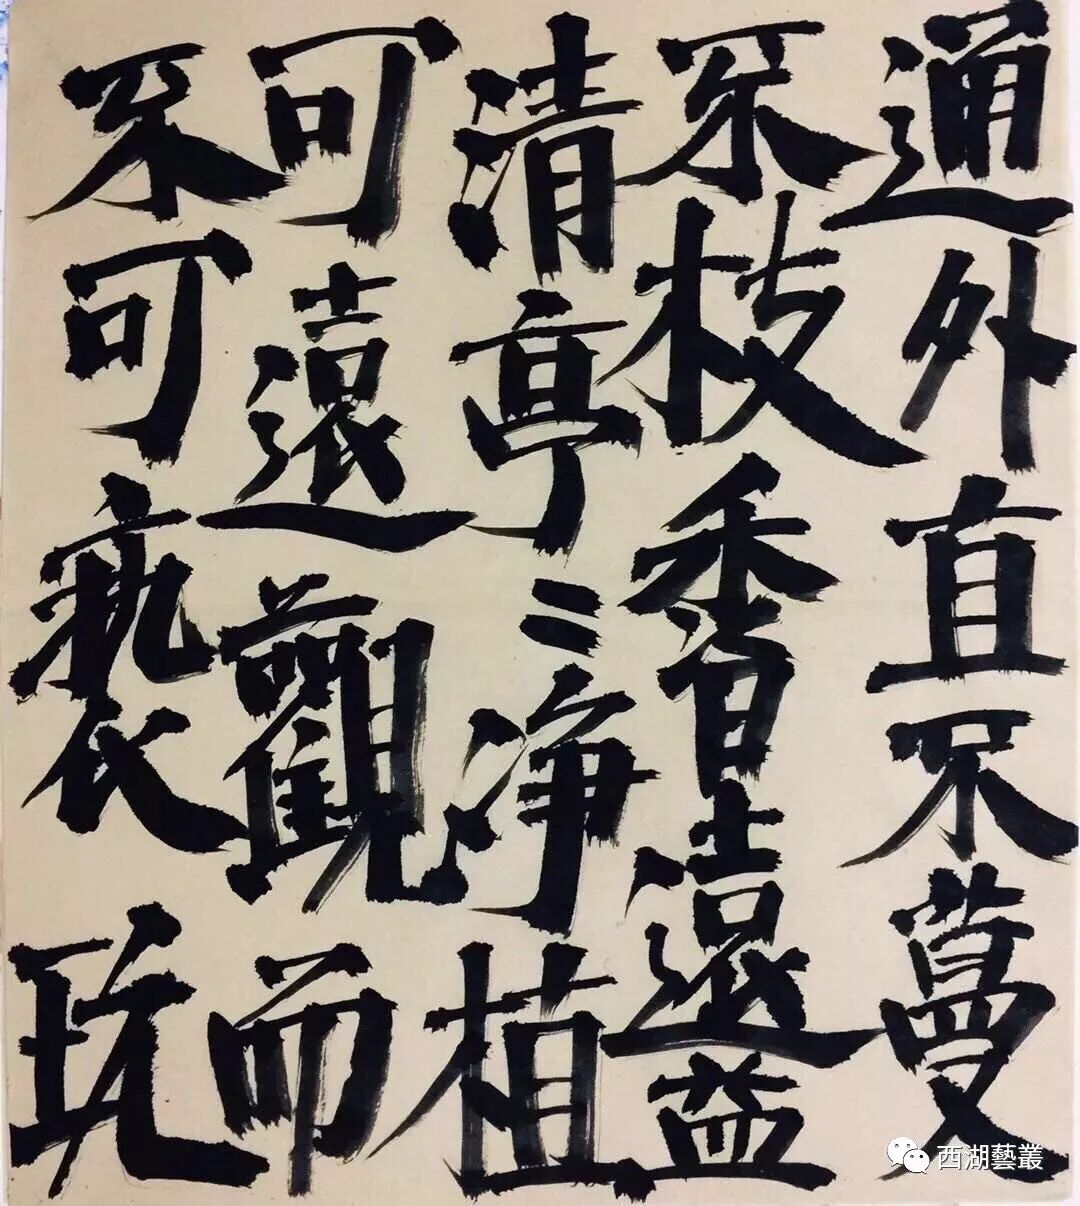 通外直不蔓
不枝香遠益
清亭〻淨植
可遠觀而
不可褻玩
西湖藝叢